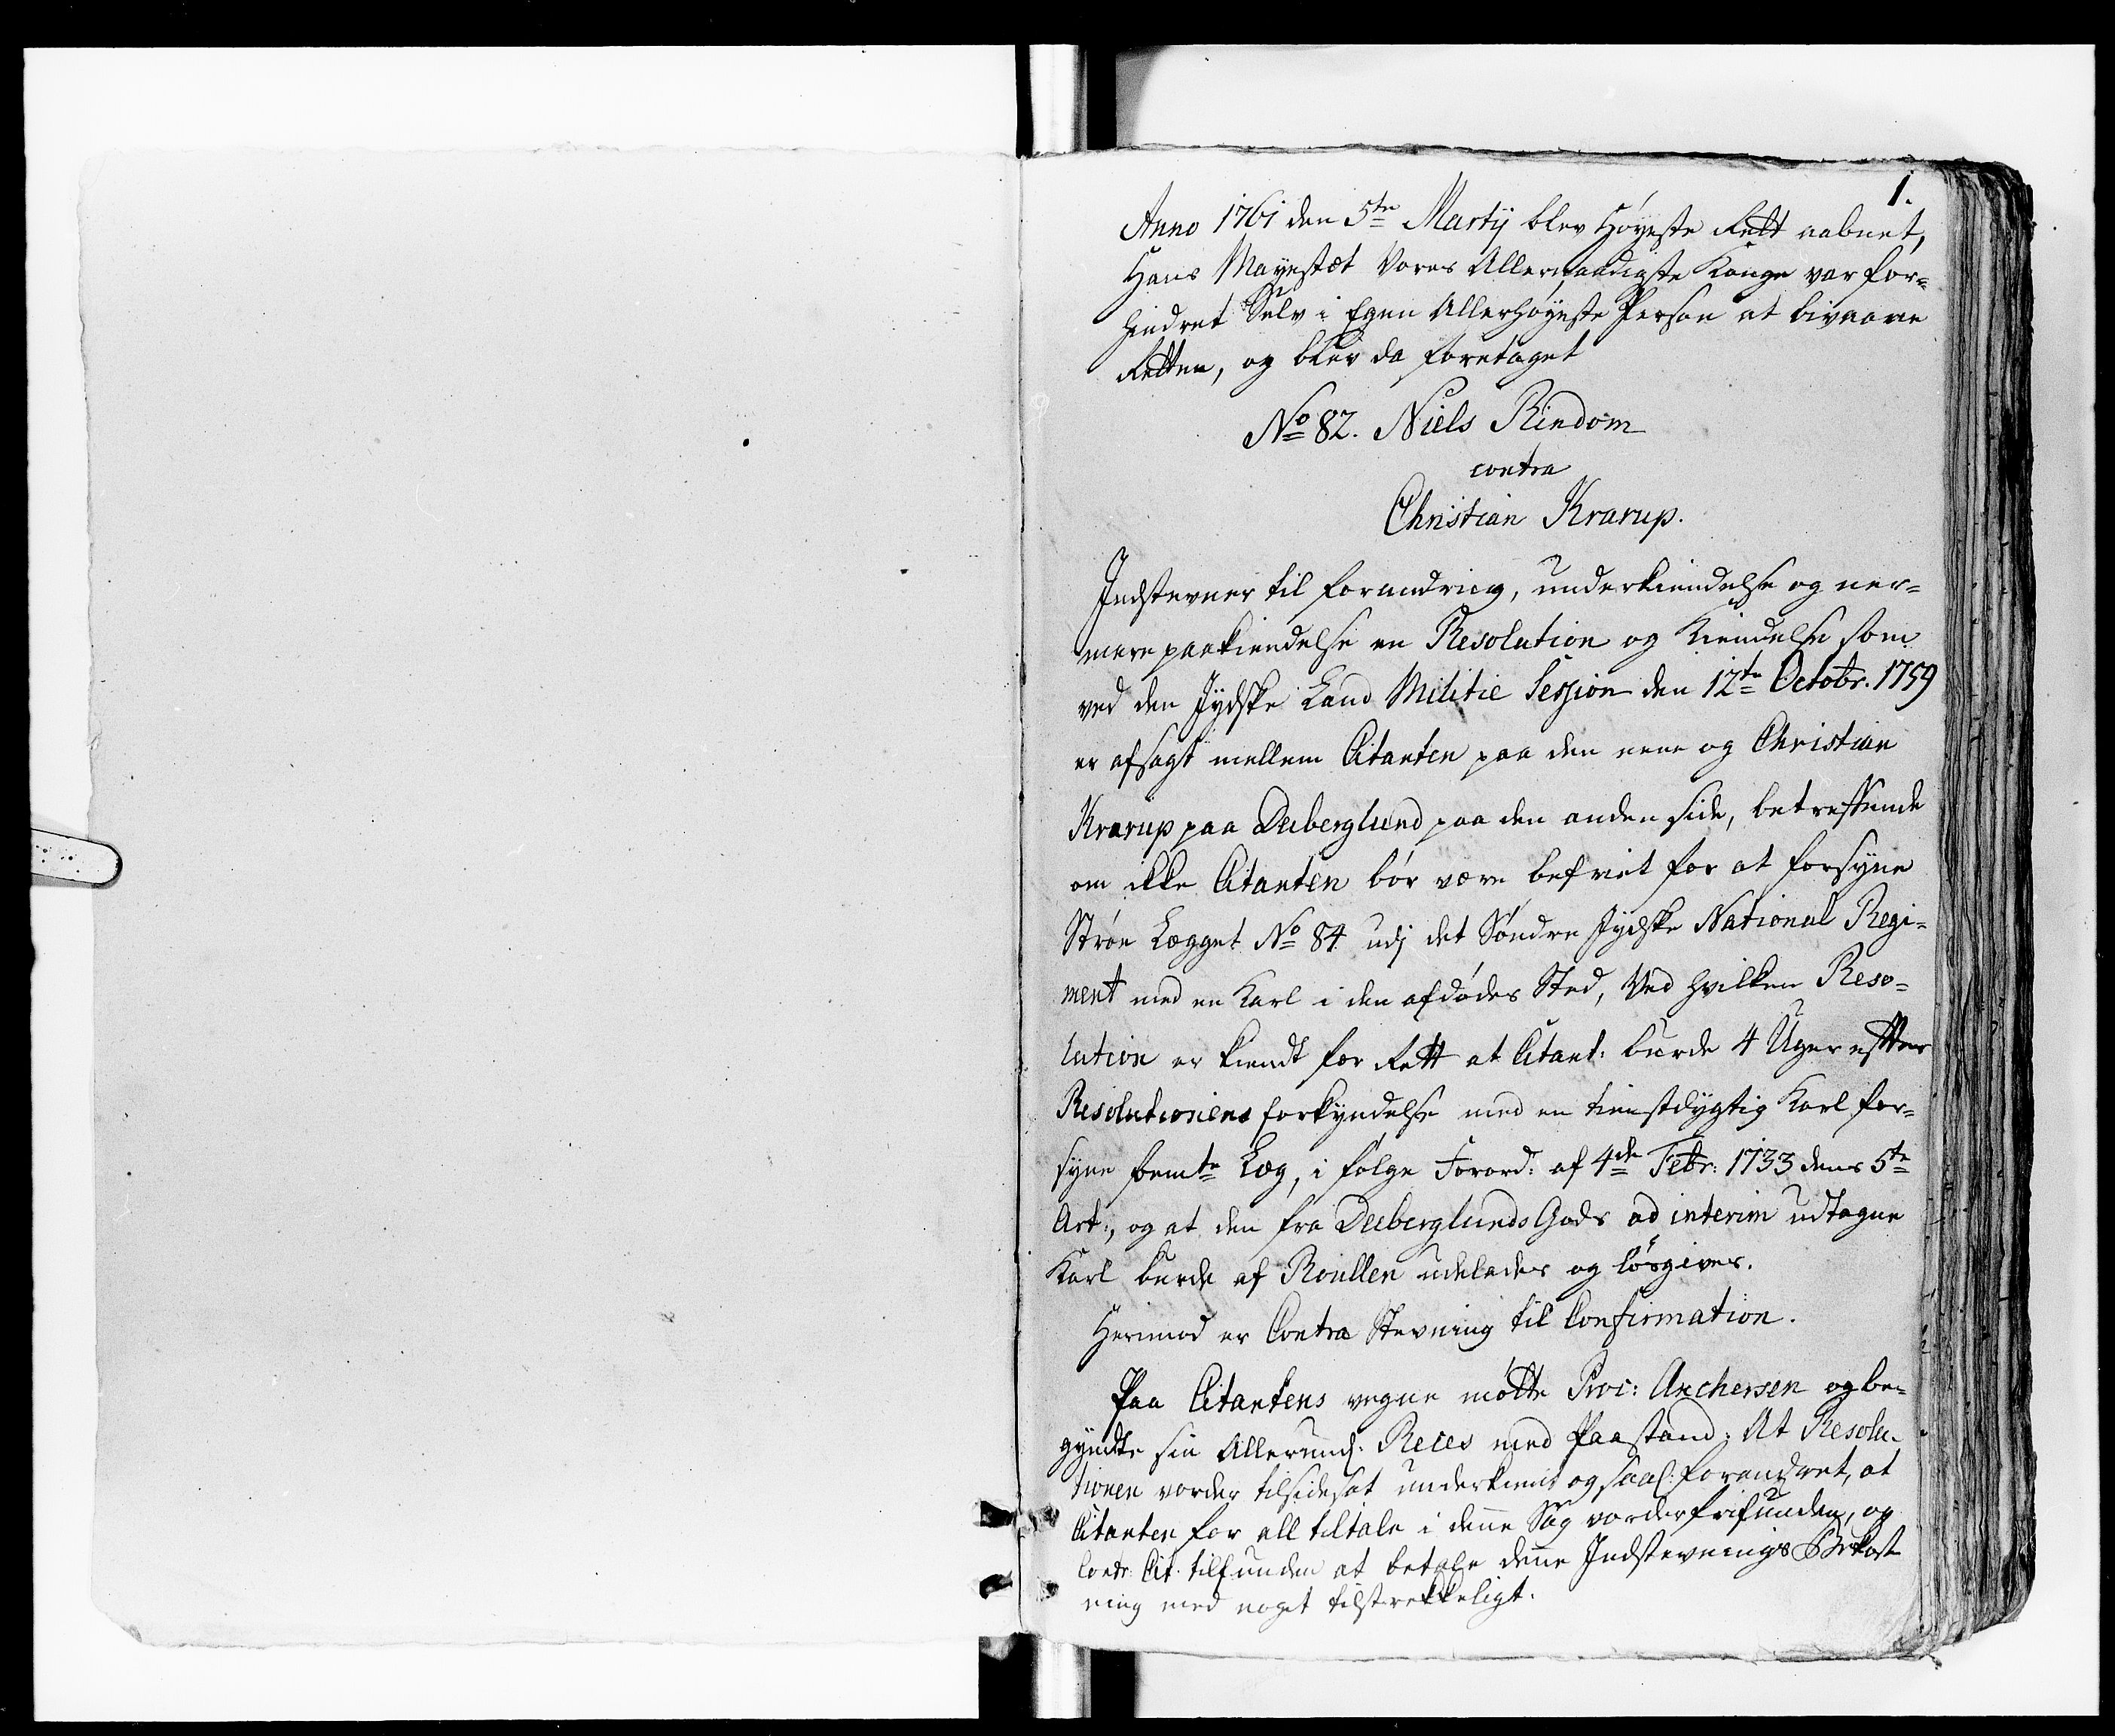 1.
Anno 1761 den 5te Martij blev Høyeste Rett aabnet,
Hans Mayestæt Vores Allernaadigste Konge var for-
hindret Selv i Egen Allerhøyeste Person at bivaane
Retten, og blev da foretaget
No 82. Niels Rindom
contra
Christian Krarup.
Indstevner til forandring, underkiendelse og ner-
mere paakiendelse en Resolution og Kiendelse som
ved den Jydske Land Militie Session den 12te Octobr. 1759
er afsagt mellem Citanten paa den eene og Christian
Krarup paa Deiberglund paa den anden side, betreffende
om ikke Citanten bør være befriet for at forsyne
Strøe Lægget No 84 udj det Søndre Jydske National Regi-
ment med en Karl i den afdødes Sted, Ved hvilken Reso-
lution er kiendt for Rett at Citant: burde 4 Uger efter
Resolutionens forkyndelse med en tienstdygtig Karl for-
syne bemte Læg, i følge Forord: af 4de Febr: 1733 dens 5te
Art:, og at den fra Deiberglunds Gods ad interim udtagne
Karl burde af Roullen udelades og løsgives.
Herimod er Contra Stevning til Confirmation.
Paa Citantens vegne mødte Proc: Anchersen og be-
gyndte sin Allerund: Reces med Paastand: At Resolu-
tionen vorder tilsidesat underkiendt og saal: forandret, at
Citanten for all tiltale i denne Sag vorder frifunden, og
Contr: Cit. tilfunden at betale denne Indstevnings Bekost
ning med noget tilstrekkeligt.